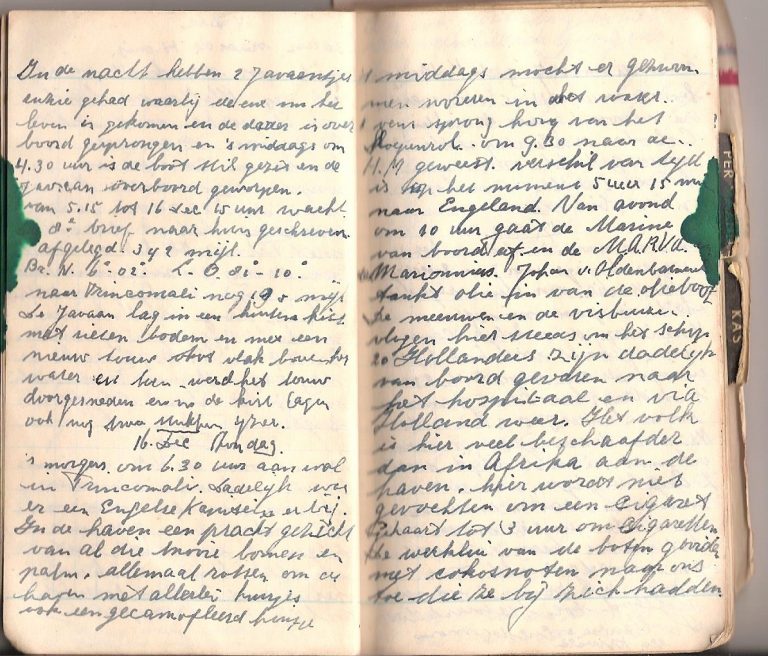 In de nacht hebben 2 Javaantjes
ruzie gehad waarbij de ene om het
leven is gekomen en de is over
boord gesprongen en 's middags om
4.30 uur is de boot stil gezet en de
Javaan overboord geworpen.
van 5.15 tot 16 Dec 15 uur wacht.
8e brief naar huis geschreven.
afgelegd 342 mijl.
Br. N. 6° 02° L. O. 81° - 10°
naar Trincomali nog mijl
De Javaan lag in een houten kist
met bodem en met een
nieuw touw vlak boven het
water en toen werd het touw
doorgesneden en in de kist lagen
ook nog twee stukken ijzer.
16 Dec Zondag.
's morgens om 6.30 uur aan wal
in Trincomali. Dadelijk was
er een Engelse bij.
In de haven een pracht gezicht
van al die mooie bomen en
palm. allemaal rotsen om de
haven met allerlei huisjes
ook een gecamofleerd huisje
's middags mocht er gezwom
men worden in het water.
sprong hoog van het
om 9.30 naar de
H.M geweest. verschil van tijd
is op het moment 5 uur 15 min
naar Engeland. Van avond
om 10 uur gaat de Marine
van boord af en de MARVA.
Mariniers. Johan v. Oldenbarnevelt
tankt olie in van de olieboot
De meeuwen en de
vlogen hier steeds om het schip
20 Hollanders zijn dadelijk
van boord gevaren naar
het hospitaal en via
Holland weer. Het volk
is hier veel beschaafder
dan in Afrika aan de
haven. hier wordt niet
gevochten om een cigaret
tot 3 uur om cigaretten
De werklui van de boten gooiden
met cokosnoten naar ons
toe die ze bij zich hadden.
TER
KAS